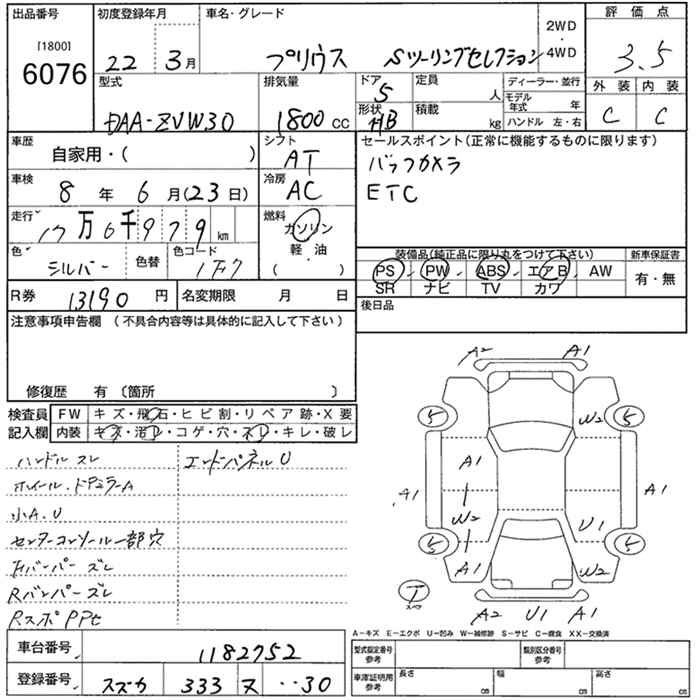 出品番号 初度登録年月 車名・グレード 2WD ・ 4WD 評価点
[1800] 6076 22 3月 プリウス Sツーリングセレクション 3.5
型式 排気量 ドア 5 定員 人 ディーラー・並行 外装 内装
DAA-ZVW30 1800 cc 形状 HB 積載 kg モデル年式 年 C C
ハンドル 左・右
車歴 自家用・( ) シフト AT セールスポイント(正常に機能するものに限ります)
バックカメラ
車検 8年 6月(23日) 冷房 AC ETC
走行 17万6千979km 燃料 ガソリン 軽・油 ( )
色 シルバー 色替 色コード 1F7
装備品(純正品に限り丸をつけて下さい) 新車保証書
PS PW ABS エアB AW 有・無
SR ナビ TV カワ
R券 13190円 名変期限 月 日 後日品
注意事項申告欄 (不具合内容等は具体的に記入して下さい)
修復歴 有 〔箇所 〕
検査員記入欄 FW キズ・飛石・ヒビ割・リペア跡・X要
内装 キズ・汚レ・コゲ・穴・スレ・キレ・破レ
ハンドルスレ エンドパネルU
ホイール、ドアミラーA
小A、U
センターコンソール一部穴
Fバンパーズレ
Rバンパーズレ
A2 A1
5 5
W2
A1
A1 A1
W2 U1
5 5
A1 W2
T スペア
A2 U1 A1
A-キズ E-エクボ U-凹み W-補修跡 S-サビ C-腐食 XX-交換済
車台番号 1182752 型式指定番号 参考 類別区分番号 参考
登録番号 スズカ 333 ヌ ・・30 車庫証明用 参考 長さ cm 幅 cm 高さ cm